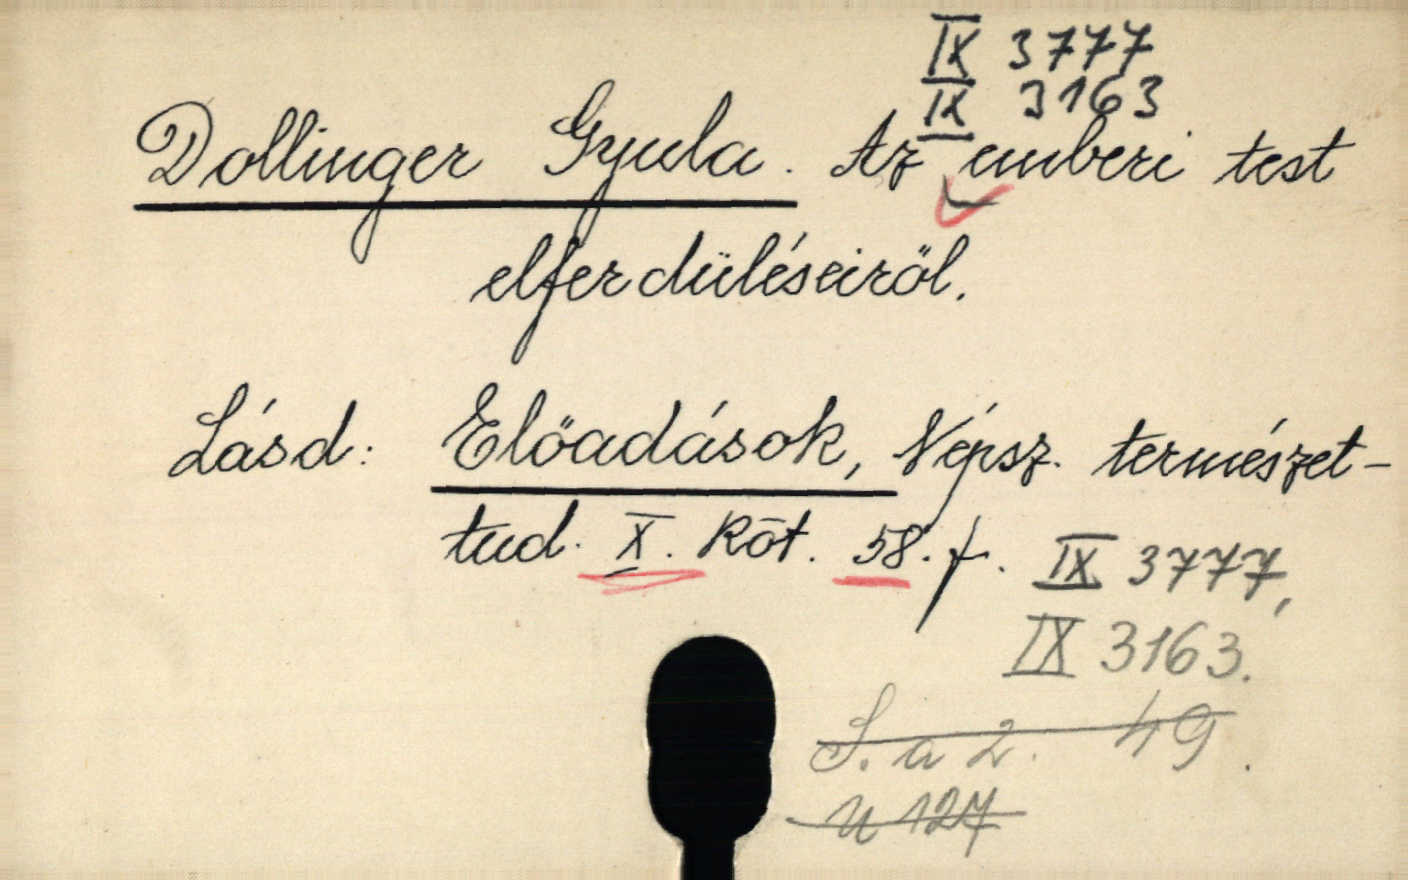 IX 3777
IX 3163
Dollinger Gyula. Az emberi test
elferdüléseiröl.
Lásd: Előadások, Népsz. természet-
tud. X. köt. 58. f. IX 3777,
IX 3163.
S. a 2. 49.
U 127